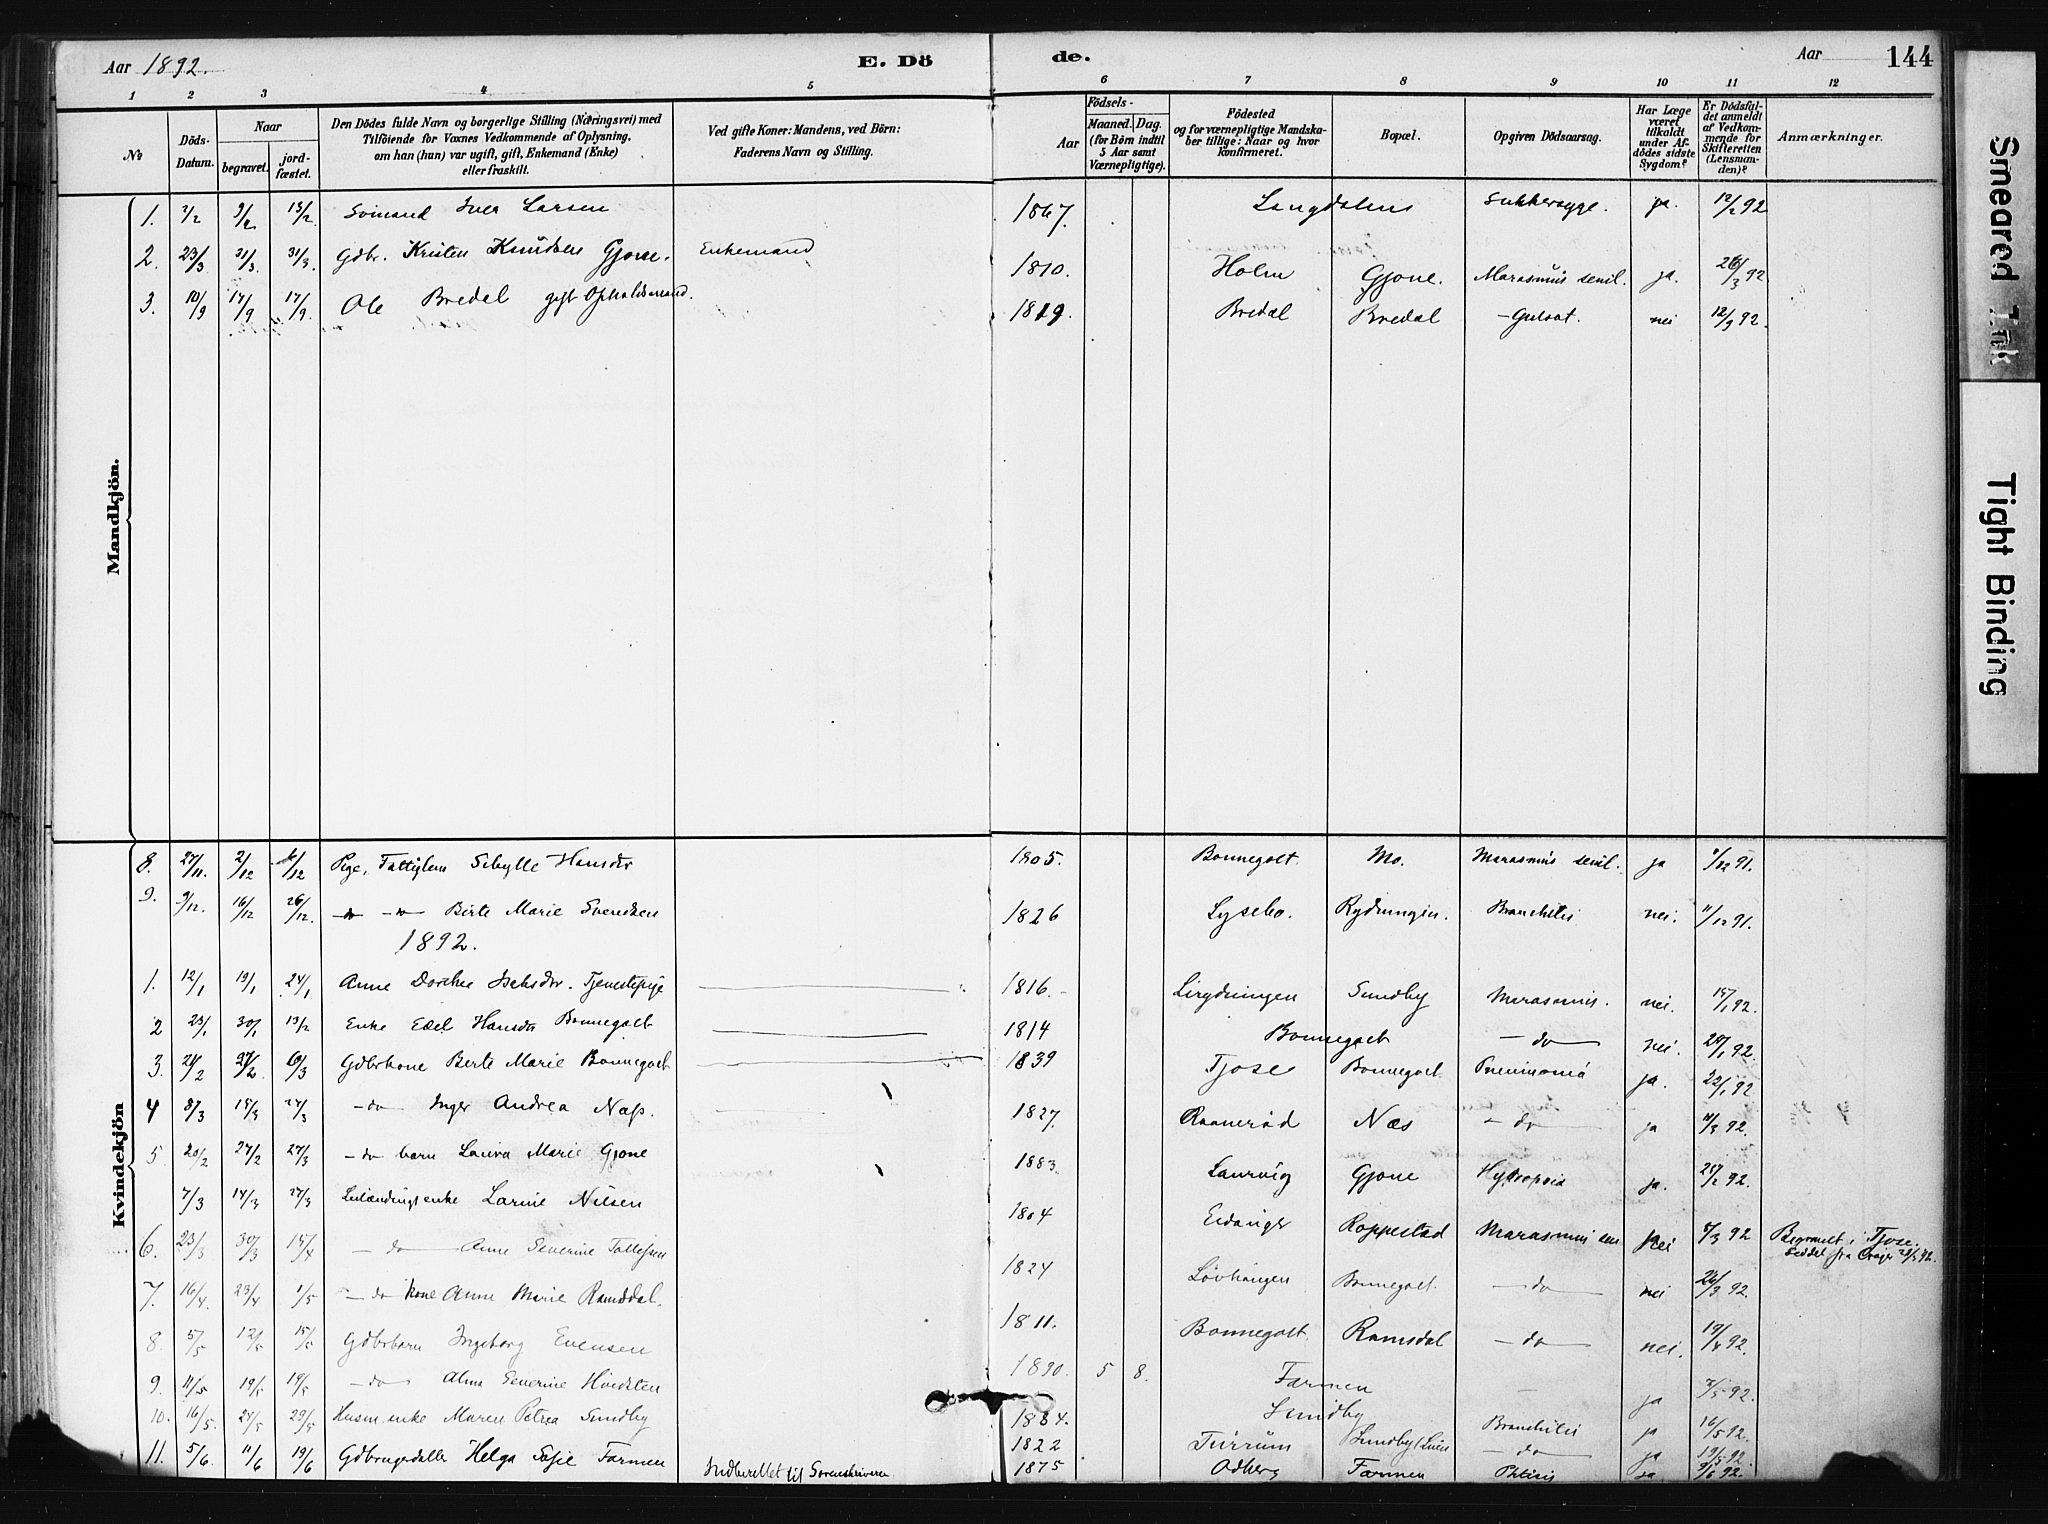 Aar 1892. E. Dö de. Aar 144
1 2 3 4 5 6 7 8 9 10 11 12
№ Döds-Datum. Naar begravet. jord-fæstet.
Den Dödes fulde Navn og borgerlige Stilling (Næringsvei) med Tilföiende for Voxnes Vedkommende af Oplysning. om han (hun) var ugift, gift, Enkemand (Enke) eller fraskilt.
Ved gifte Koner: Mandens, ved Börn: Faderens Navn og Stilling.
Aar Födsels- Maaned. Dag. (for Börn indtil 5 Aar samt Værnepligtige).
Födested og for værnepligtige Mandskaber tillige: Naar og hvor konfirmeret.
Bopæl.
Opgiven Dödsaarsag.
Har Læge været tilkaldt under Afdödes sidste Sygdom?
Er Dödsfaldet anmeldt af Vedkommende for Skifteretten (Lensmanden)?
Anmærkninger.
Mandkjön.
1. 2/2 9/2 13/2 Sömand Iver Larsen 1867. Langdalens Sukkersyge. ja. 12/2 92
2. 23/3 31/3. 31/3. Gdbr. Kristen Knudsen Gjone. Enkemand 1810. Holm Gjone. Marasmus senil. ja. 26/3 92.
3. 10/9 17/9 17/9. Ole Bredal gift Opholdsmand. 1819. Bredal Bredal Gulsot. nei 12/9 92.
Kvindekjön
8. 27/11. 2/12 6/12 Pige, Fattiglem Sibylle Hansdr 1805. Bonnegolt. Mo. Marasmus senil. ja 1/12 91.
9. 9/12. 16/12 26/12. do do Birte Marie Svendsen 1826 Lysebo. Bronchitis nei. 11/12 91.
1892.
1. 12/1 19/1 24/1 Anne Dorthea Tjenestepige 1816. Sundby Marasmus. nei. 92.
2 23/1 30/1 13/2 Enke Edel Hansdr Bonnegolt 1814 Bonnegolt do nei. 92.
3. 2 27/2. 6/3 Gdbrkone Berte Marie Bonnegolt 1839 Tjose Bonnegolt Pneumonia ja. 92
4 8/3 15/3 27/3 do Inger Andrea Næss. 1827. Raanerød Næs do ja 11/3 92.
5. 20/2 27/2 27/3 do barn Laura Marie Gjone 1883. Laurvig Gjone Hydropsia ja. 2 92.
7/3 14/3 27/3 enke Larine Nilsen 1804 Eidanger Roppestad Marasmus sen nei 8/3 92 Begravet i Tjose. Seddel fra
6. 23/3 30/3 15/4 do Anne Severine Tollefsen 1824 Løvhaugen Bonnegolt do nei 26/3 92.
7. 16/4. 23/4 1/5 do kone Anne Marie Ramsdal. 1811. Bonnegolt Ramsdal do nei. 19/4 92.
8. 5/5 12/5 15/5 Gdbrbarn Ingeborg Evensen 1890. 5 8. Farmen ja 92.
9. 11/5 19/5 19/5 do Alma Severine 1884. Sundby Bronchitis ja 16/5 92.
10. 16/5. 24/5 29/5 Husm. enke Maren Petrea Sundby 1822 Sundby do ja 19/5 92
11. 5/6. 11/6 19/6 Helga Sofie Farmen Indberettet til Sorenskriveren 1875 Odberg Farmen Phtisis ja 6 92.
Smeared Ink
Tight Binding